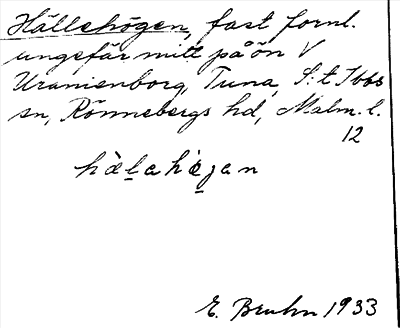 Hällehögen, fast fornl.
ungefär mitt på ön V
Uranienborg, Tuna, S:t Ibbs
sn, Rönnebergs hd, Malm. l.
12
hàl̲ahø̲̀gan
E. Bruhn 1933